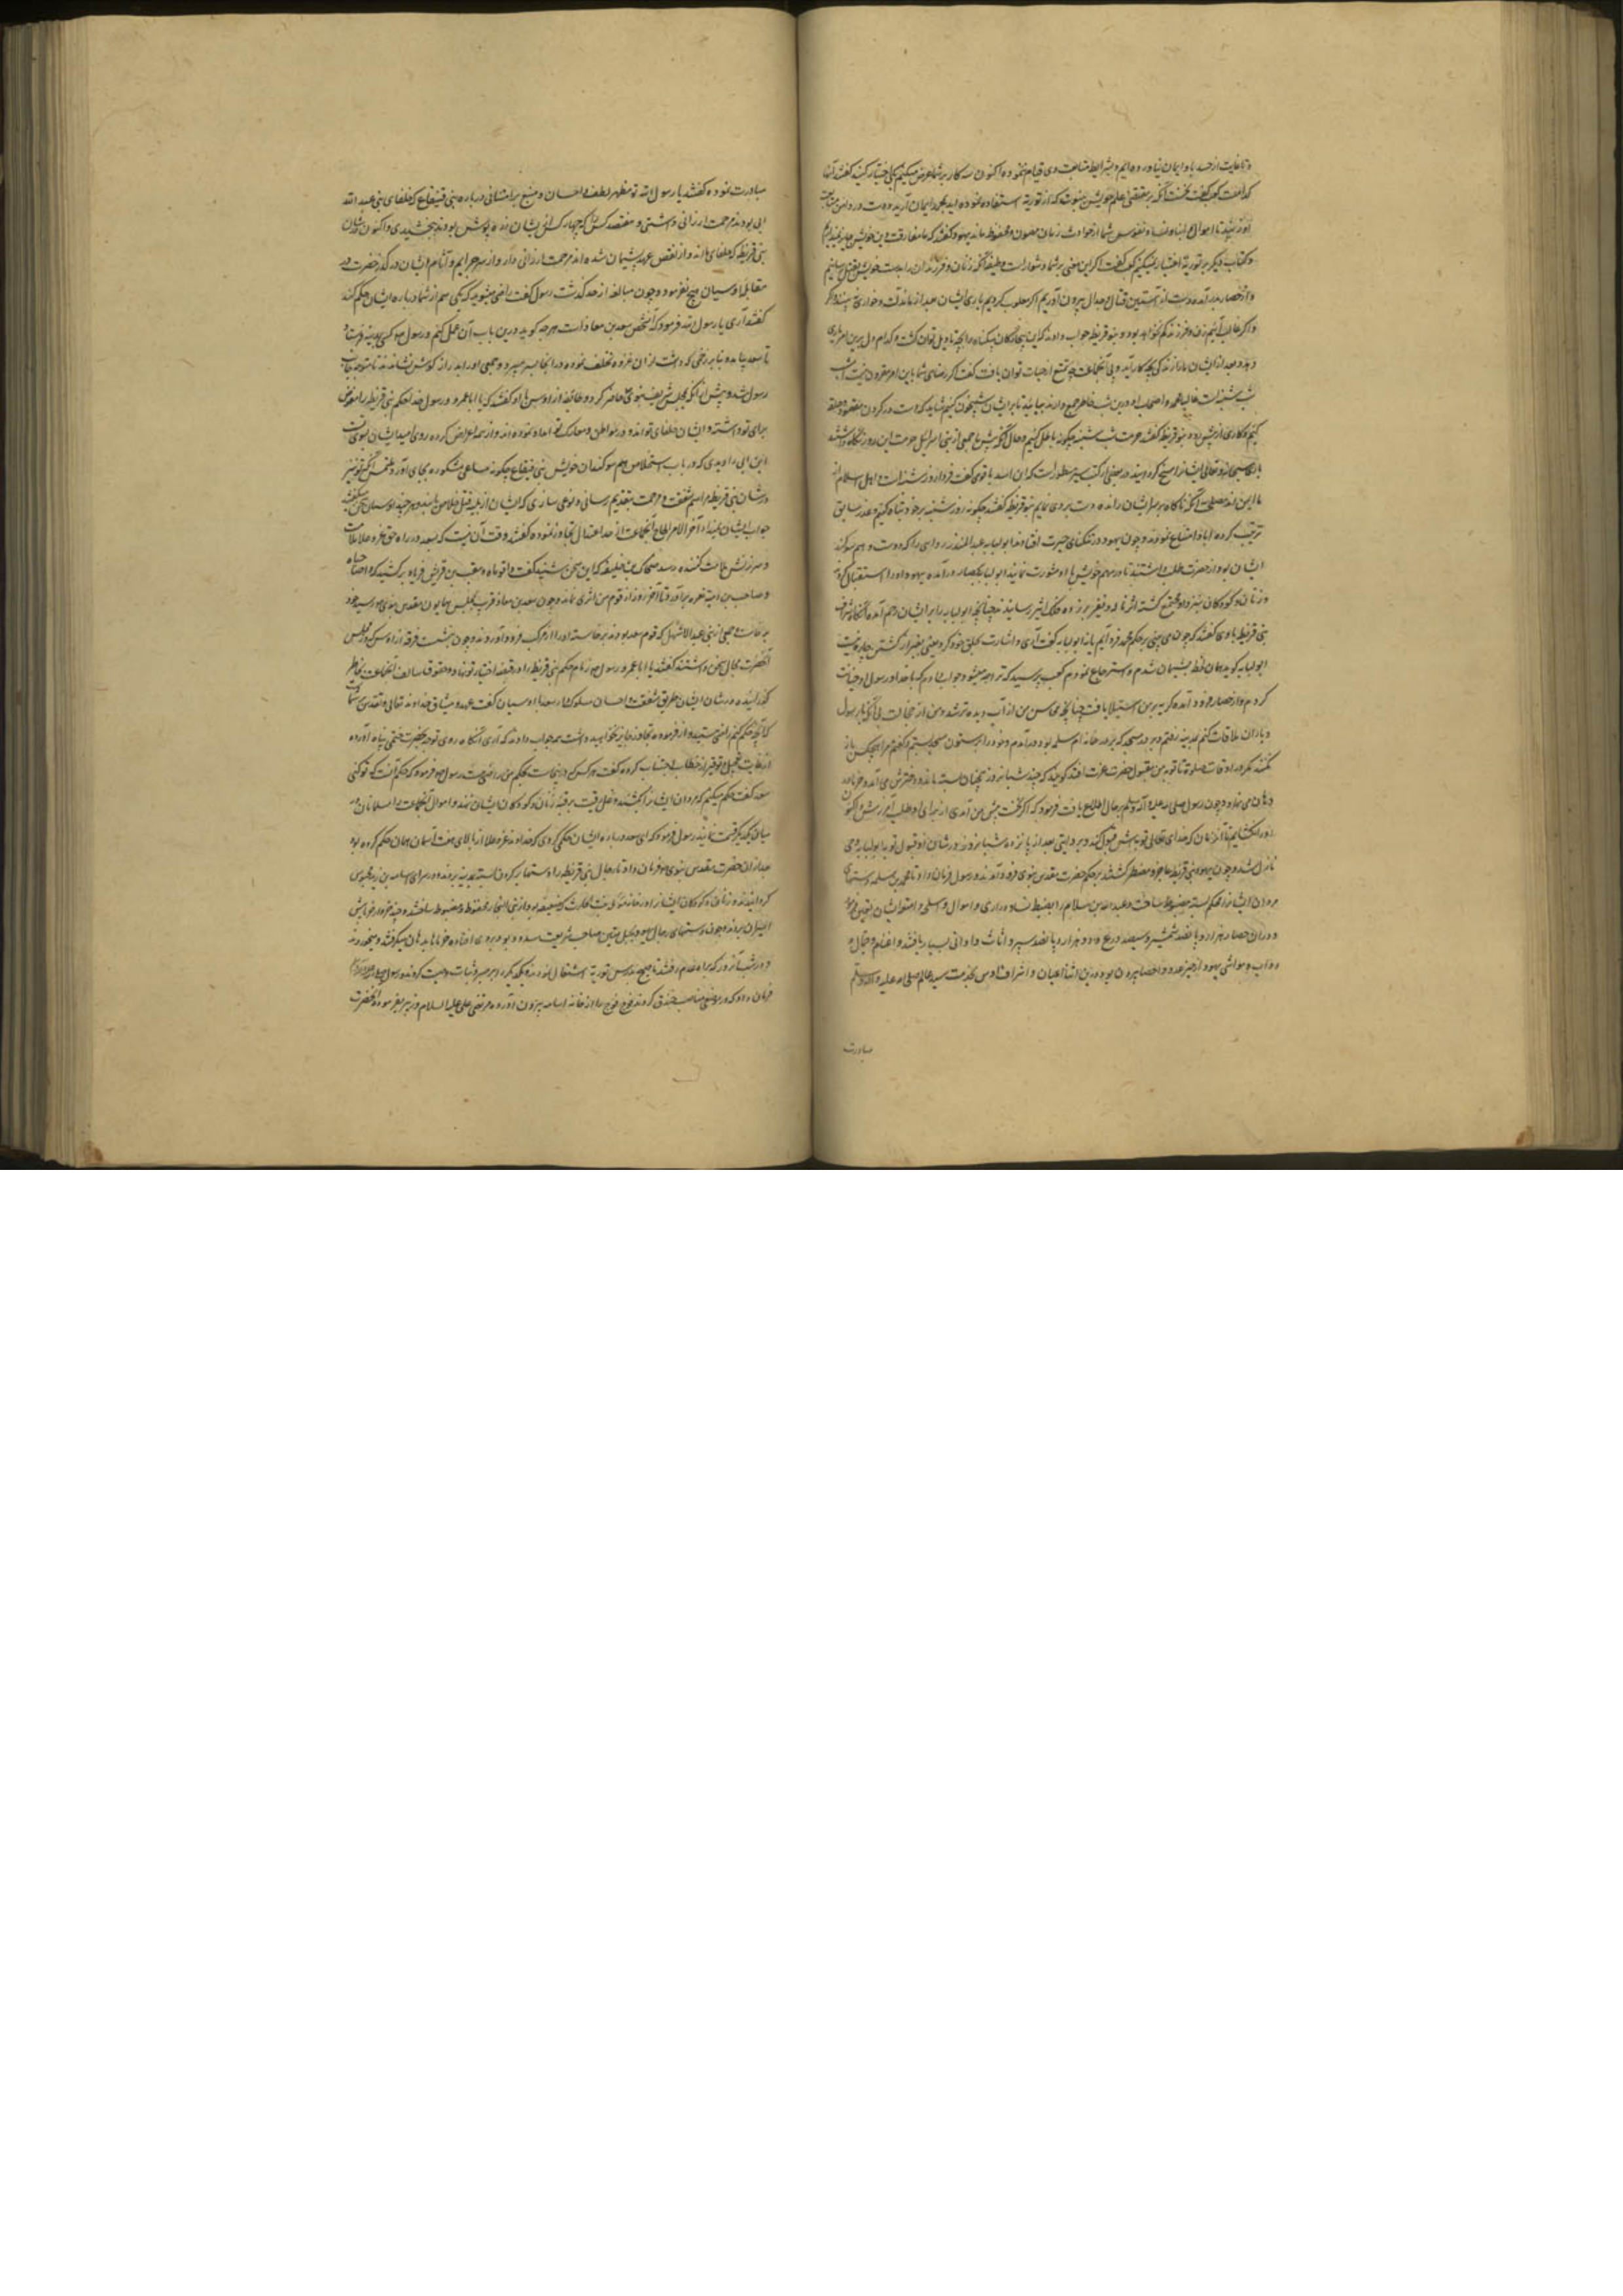 و تا غایت از حسد باو ایمان نیاورده‌ایم و بشرایط متابعت وی قیام ننموده اکنون سه کار بر شما عرض میکنم یکی اختیار کنید گفتند آن
کدامست کعب گفت نخست آنکه بمقتضی علم خویش بنبوت که از توریة استفاده نموده اید بمحمد ایمان آرید و دست در دامن متابعت
او زنید تا اموال و ابناء و نساء و نفوس شما از حوادث زمان مصون و محفوظ ماند یهود گفتند که ما مفارقت دین خویش جایز نمیداریم
و کتاب دیگر بر توریة اختیار نمیکنیم کعب گفت اگر این معنی بر شما دشوار است وظیفه آنکه زنان و فرزندان را بدست خویش بقتل رسانیم
و از حصار بدر آمده دست از آستین قتال و جدال بیرون آوریم اگر مغلوب گردیم باری ایشان بعد از ما مذلت و خواری نه بینند و اگر
و اگر غالب آئیم زن و فرزند کم نخواهد بود بنو قریظه جواب دادند که این بیچارگان بیگناه را بچه تاویل توان کشت و کدام دل برین امر یاری
دهد و بعد از ایشان ما را زندگی بچه کار آید و بی آنجماعت چه تمتع از حیات توان یافت کعب گفت اگر رضای شما باین امر مقرون نیست امشب
شب شنبه است غالبا محمد و اصحاب او درین شب خاطر جمع دارند بیائید تا بر ایشان شبیخون کنیم شاید که
کنیم و کاری از پیش رود بنو قریظه گفتند حرمت شب شنبه چگونه باطل کنیم و حال آنکه پیش از ما جمعی از بنی اسرائیل حرمت این روز نگاه نداشتند
باری سبحانه و تعالی ایشانرا مسخ گردانید در بعضی از کتب سیر مسطور است که
ما ایمن اند مصلحت آنکه ناگاه بر سر ایشان رانده دست بردی نمایم بنو قریظه گفتند چگونه روز شنبه بر خود تباه کنیم و عذر سابق
ترتیب کرده ابا و امتناع نمودند و چون یهود در تنگنای حیرت افتادند ابو لبابه بن عبد المنذر را که دوست و هم سوگند
ایشان بود از حضرت طلب داشتند تا در مهم خویش با او مشورت نمایند ابو لبابه بحصار در آمده یهود او را استقبال کردند
و زنان و کودکان نیز مجتمع گشته اثر ناله و نفیر برآورده فلک اثیر رسانیدند چنانچه ابو لبابه را بر ایشان رحم آمد آنگاه اشراف
بنی قریظه باوی گفتند که چون می بینی بر حکم محمد فرود آئیم یا نه ابو لبابه گفت آری و اشارت بحلق خود کرد یعنی بغیر از کشتن چاره نیست
ابو لبابه گوید همان لحظه پشیمان شدم و استرجاع نمودم کعب پرسید که ترا چه میشود جواب دادم که با خدا و رسول او خیانت
کردم و از حصار فرود آمده گریه بر من استیلا یافت چنانچه محاسن من از آب دیده تر شد و من از خجالت بی آنکه با رسول
و یاران ملاقات کنم بمدینه رفتم و بر در مسجد که بر در خانه ام سلمه بود درآمدم و خود را بر ستون مسجد بستم و گفتم مرا هیچکس باز
نکند مگر در اوقات صلوة تا توبه من مقبول حضرت عزت افتد گویند که چند شبانروز همچنان بسته ماند و دخترش می آمد و خرما در
دهان می نهاد و چون رسول صلی الله علیه و آله وسلم بر حال اطلاع یافت فرمود که اگر نخست پیش من آمدی از برای او طلب آمرزش کردمی و اکنون
او را نگشایم تا آن زمان که خدای تعالی توبه‌اش قبول کند و بروایتی بعد از پانزده شبانروز در شان او قبول توبه ابو لبابه وحی
نازل شد و چون یهود بنی قریظه عاجز و مضطر گشتند بر حکم حضرت مقدس نبوی فرود آمدند و رسول فرمان داد تا محمد بن مسلمه دستهای
مردان ایشانرا محکم بسته مضبوط ساخت و عبد الله بن سلام را بضبط نساء و ذراری و اموال و اسلحه و امتعه ایشان تعیین فرمود
و در آن حصار هزار و پانصد شمشیر و سیصد درع و دو هزار و پانصد سپر و اثاث و اوانی بسیار یافتند و اغنام و جمال و
دواب و مواشی یهود از حیز عدد و احصا بیرون بود درین اثنا اعیان و اشراف اوس بخدمت سید عالم صلی الله علیه و آله وسلم
مبادرت
مبادرت نموده گفتند یا رسول الله تو مظهر لطف و احسان و منبع بر و امتنانی در باره بنی قینقاع که حلفای بنی عبد الله
ابی بودند مرحمت ارزانی داشتی و هفتصد کس را که چهارصد کس از ایشان زره پوش بودند بخشیدی و اکنون در شان
بنی قریظه که حلفای ما اند و از نقض عهد پشیمان شده اند مرحمت ارزانی دار و از سر جرایم و آثام ایشان درگذر حضرت در
مقابل اوسیان هیچ نفرمود و چون مبالغه از حد گذشت رسول گفت راضی میشوید که یکی هم از شما در باره ایشان حکم کند
گفتند آری یا رسول الله فرمود که آن شخص سعد بن معاذ است هر چه گوید درین باب آن عمل کنم و رسول کسی بمدینه فرستاد
تا سعد بیاید و بنا بر زخمی که داشت از آن غزوه تخلف نموده در آنجا بسر میبرد و جمعی او را بر دراز گوش نشاندند تا متوجه جانب
رسول شد و پیش از آنکه بمجلس شریف نبوی حاضر گردد طائفه از اوس با او گفتند که یا ابا عمرو رسول خدا حکم بنی قریظه را مفوض
برای تو داشته و ایشان حلفای تو اند و در مواطن و معارک امداد نموده اند و از همه اعراض کرده روی امید ایشان بسوی تست
ابن ابی را دیدی که در باب استخلاص هم سوگندان خویش بنی قینقاع چگونه مساعی مشکوره بجای آورد ملتمس آنکه تو نیز
در شان بنی قریظه مراسم شفقت و مرحمت بتقدیم رسانی و نوعی سازی که ایشان از بلیه قتل خلاص یابند و هر چند اوسیان سخن میگفتند
جواب ایشان نمیداد آخر الامر الحاح آنجماعت از حد اعتدال تجاوز نموده گفتند وقت آن نیست که سعد در راه حق عز و علا ملامت
و سرزنش ملامت کننده رسد ضحاک بن خلیفه که این سخن بشنید گفت وا قوماه و معتب بن قشیر فریاد برکشید که وا صباحاه
و حاطب بن امیه نعره برآورد تا آخر روز از قوم من اثری نماند و چون سعد بن معاذ قریب مجلس همایون مقدس نبوی رسید
برخاست و جمعی از بنی عبد الاشهل که قوم سعد بودند برخاسته او را از مرکب فرود آوردند و چون بنشست فرقه از اوس که در مجلس
آنحضرت مجال سخن داشتند گفتند یا ابا عمرو رسول زمام حکم بنی قریظه را در قبضه اختیار تو نهاده حقوق سالف آنجماعت بخاطر
گذرانیده در شان ایشان طریق شفقت و احسان مسلوک دار سعد با اوسیان گفت عهد و میثاق خداوند تعالی و تقدس با شما است
که آنچه حکم کنم راضی هستید و از فرموده تجاوز جایز نخواهید داشت همه جواب دادند که آری آنگاه روی توجه بحضرت ختمی پناه آورده
از غایت تبجیل و توقیر از خطاب اجتناب کرده گفت هر کس که درینجاست بحکم من راضی هست رسول فرمود که حکم آنست که تو کنی
سعد گفت حکم میکنم که مردان ایشانرا بکشند و غل رقیت بر رقبه زنان و کودکان ایشان نهند و اموال آنجماعت را مسلمانان در
میان یکدیگر قسمت نمایند رسول فرمود که ای سعد در باره ایشان حکمی کردی که خداوند عز و علا از بالای هفت آسمان همان حکم کرده بود
بعد از آن حضرت مقدس نبوی فرمان داد تا رجال بنی قریظه را دستها بر گردن بسته بمدینه بردند و در سرای اسامه بن زید محبوس
گردانیدند و زنان و کودکان ایشانرا در خانه رمله بنت الحارث که ضعیفه بود از بنی النجار محفوظ و مضبوط ساختند و چند خروار خرما پیش
اسیران بردند و چون دستهای رجال یهود بحبل متین صاحب شریعت بسته بود بروی افتاده خرما بدهان میگرفتند و میخوردند
و در شب آن روز که براه عدم رفتند تا صبح بدرس توریة اشتغال نمودند و یکدیگر را بر صبر و ثبات وصیت کردند و رسول صلی الله علیه و آله
فرمان داد که در موضعی مناسب خندق کندند فوج فوج را از خانه اسامه بیرون آورده مرتضی علی علیه السلام و زبیر بفرموده آنحضرت